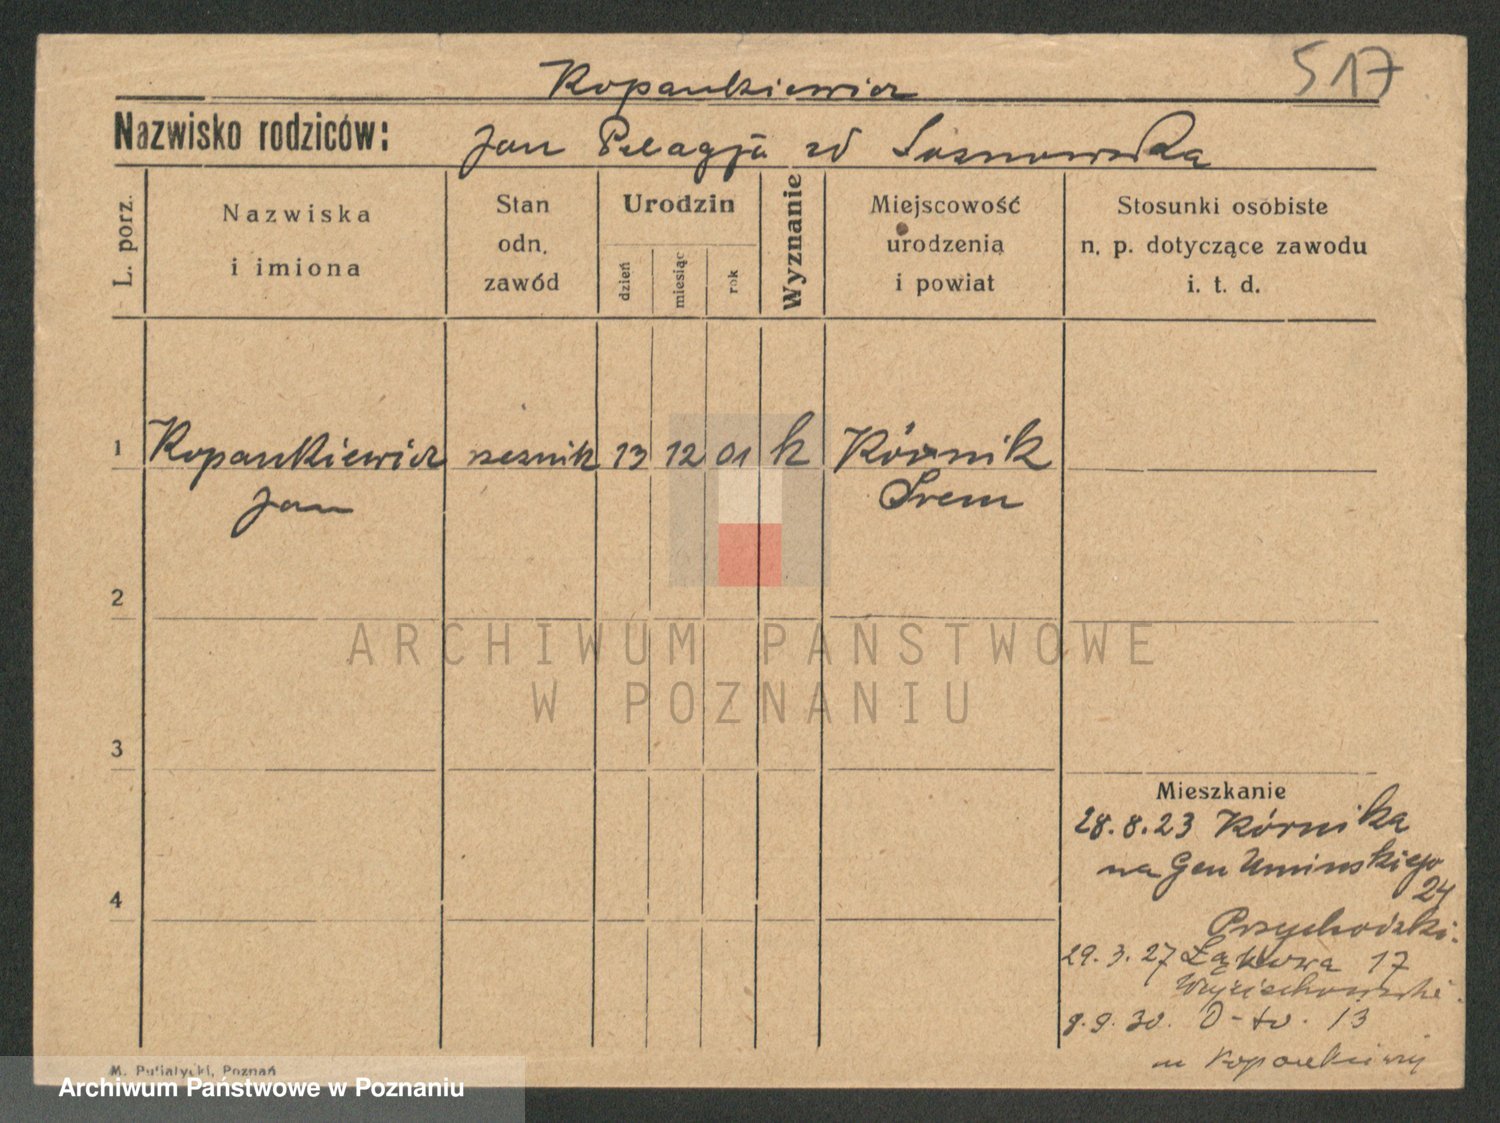 517
Kopankiewicz
Nazwisko rodziców: Jan Pelagja zd Sosnowska
L. porz.
Nazwiska
i imiona
Stan
odn.
zawód
Urodzin
dzień
miesiąc
rok
Wyznanie
Miejscowość
urodzenia
i powiat
Stosunki osobiste
n. p. dotyczące zawodu
i. t. d.
1 Kopankiewicz rzeznik 13 12 01 k Kórnik
Jan Srem
2
ARCHIWUM PAŃSTWOWE
W POZNANIU
3
Mieszkanie
28.8.23 Kórnika
na Gen Uminskiego
24
4
Przychodzki.
29.3.27 Łąkowa 17
Wojciechowski.
9.9.30. D-to. 13
u
M. Putiatycki, Poznań
Archiwum Państwowe w Poznaniu